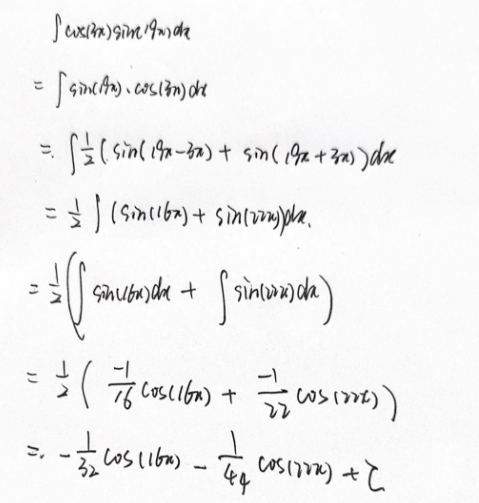 ∫cos(3x)sin(19x)dx
= ∫sin(19x)·cos(3x)dx
= ∫½(sin(19x-3x) + sin(19x+3x))dx
= ½∫(sin(16x) + sin(22x))dx.
= ½(∫sin(16x)dx + ∫sin(22x)dx)
= ½(-1/16 cos(16x) + -1/22 cos(22x))
= -1/32 cos(16x) - 1/44 cos(22x) + C